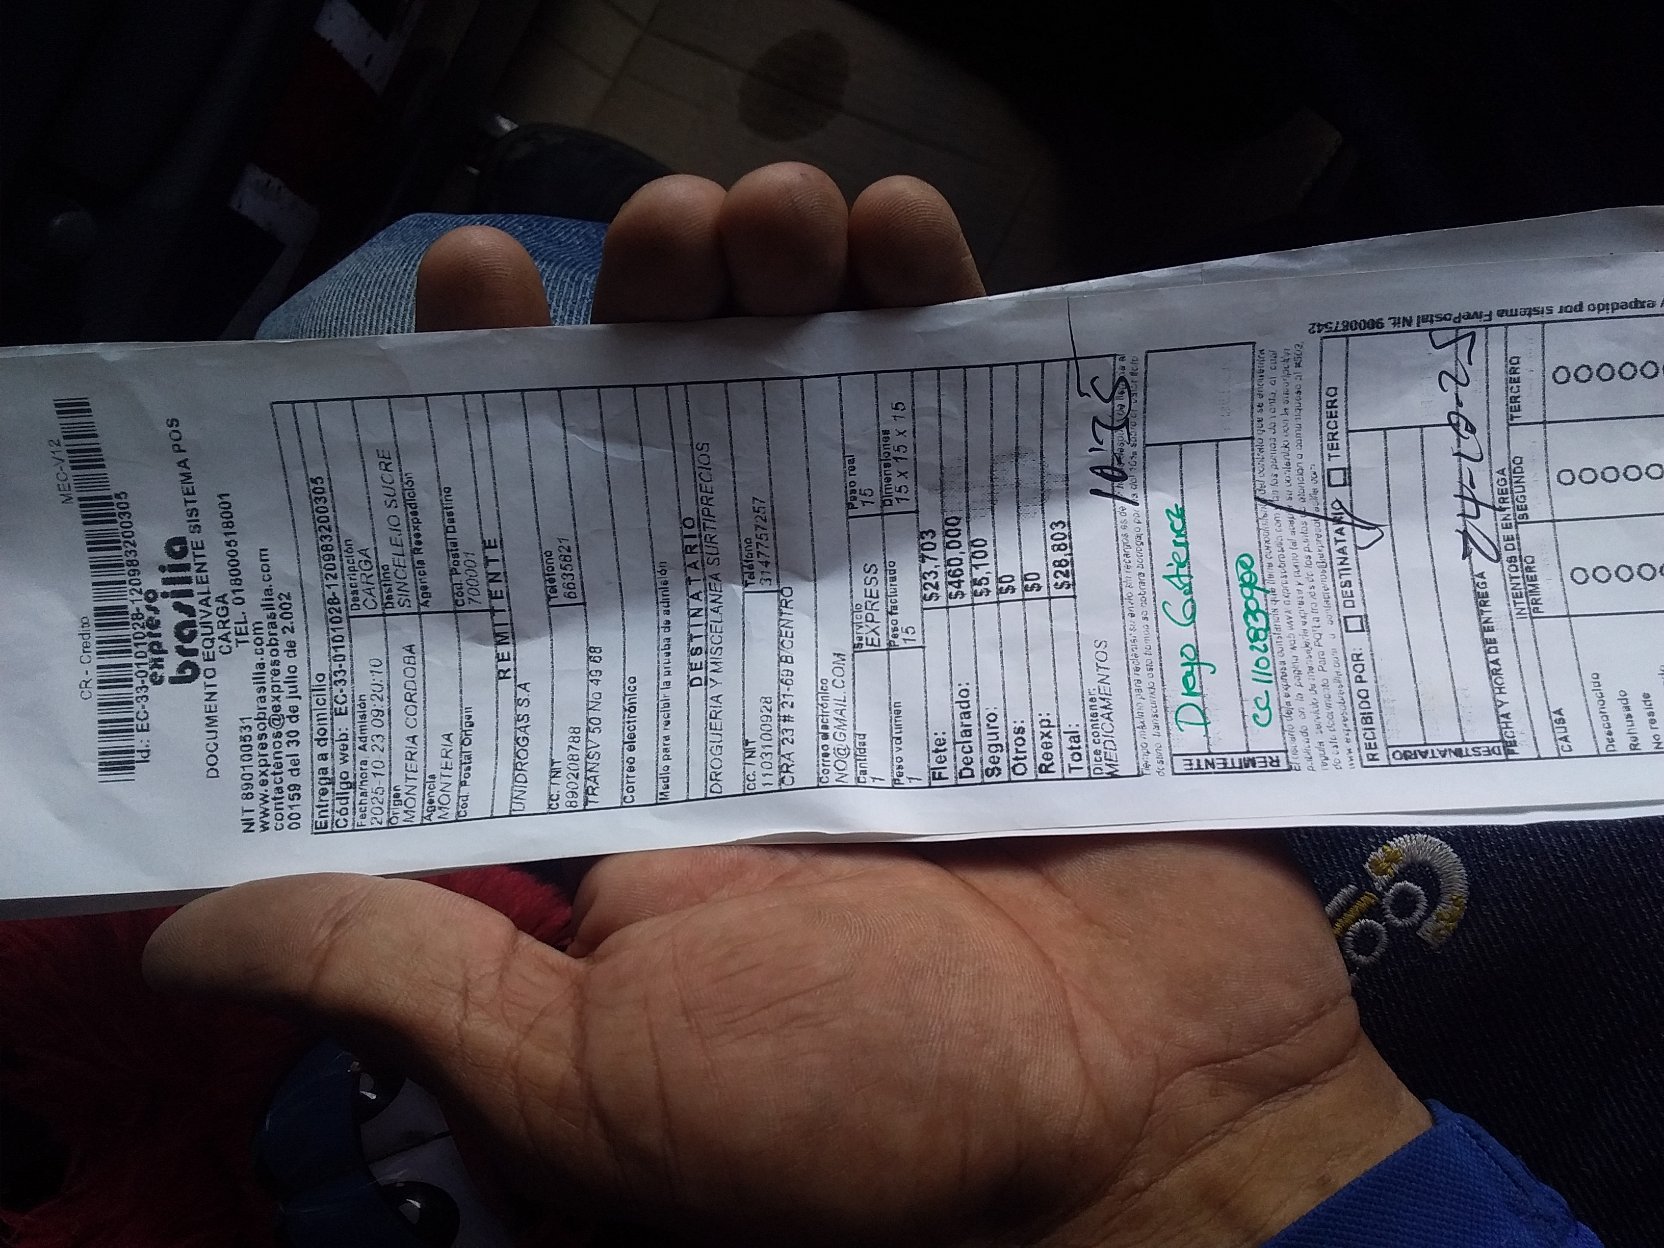 CR - Credito MEC-V12
Id.: EC-33-0101028-12098320030​5
expreso
brasilia
DOCUMENTO EQUIVALENTE SISTEMA POS
CARGA
TEL. 018000518001
NIT 890100531
www.expresobrasilia.com
contactenos@expresobrasilia.com
00159 del 30 de julio de 2.002
Entrega a domicilio
Código web: EC-33-0101028-120983200305
Fecha/hora Admisión Descripción
2025-10-23 09:20:10 CARGA
Origen Destino
MONTERIA CORDOBA SINCELEJO SUCRE
Agencia Agencia Reexpedición
MONTERIA
Cód. Postal Origen Cód. Postal Destino
700001
REMITENTE
UNIDROGAS S.A
CC. / NIT Teléfono
890208788 6635821
TRANSV 50 No 49 68
Correo electrónico
Medio para recibir la prueba de admisión
DESTINATARIO
DROGUERIA Y MISCELANEA SURTIPRECIOS
CC. / NIT Teléfono
1103100928 3147757257
CRA 23 # 21-69 B/CENTRO
Correo electrónico
NO@GMAIL.COM
Cantidad Servicio Peso real
1 EXPRESS 15
Peso volumen Peso facturado Dimensiones
1 15 15 X 15 X 15
Flete: $23,703
Declarado: $460,000
Seguro: $5,100
Otros: $0
Reexp: $0
Total: $28,803
Dice contener:
MEDICAMENTOS
REMITENTE:
RECIBIDO POR: DESTINATARIO TERCERO
DESTINATARIO
24-10-25
FECHA Y HORA DE ENTREGA
INTENTOS DE ENTREGA
PRIMERO SEGUNDO TERCERO
CAUSA
Desconocido
Rehusado
No reside
expedido por sistema FivePostal Nit. 900087542